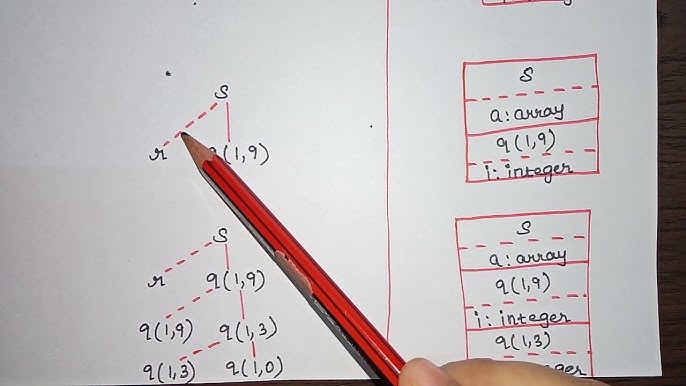 S
r q(1,9)
S
r q(1,9)
q(1,9) q(1,3)
q(1,3) q(1,0)
S
a: array
q(1,9)
i: integer
S
a: array
q(1,9)
i: integer
q(1,3)